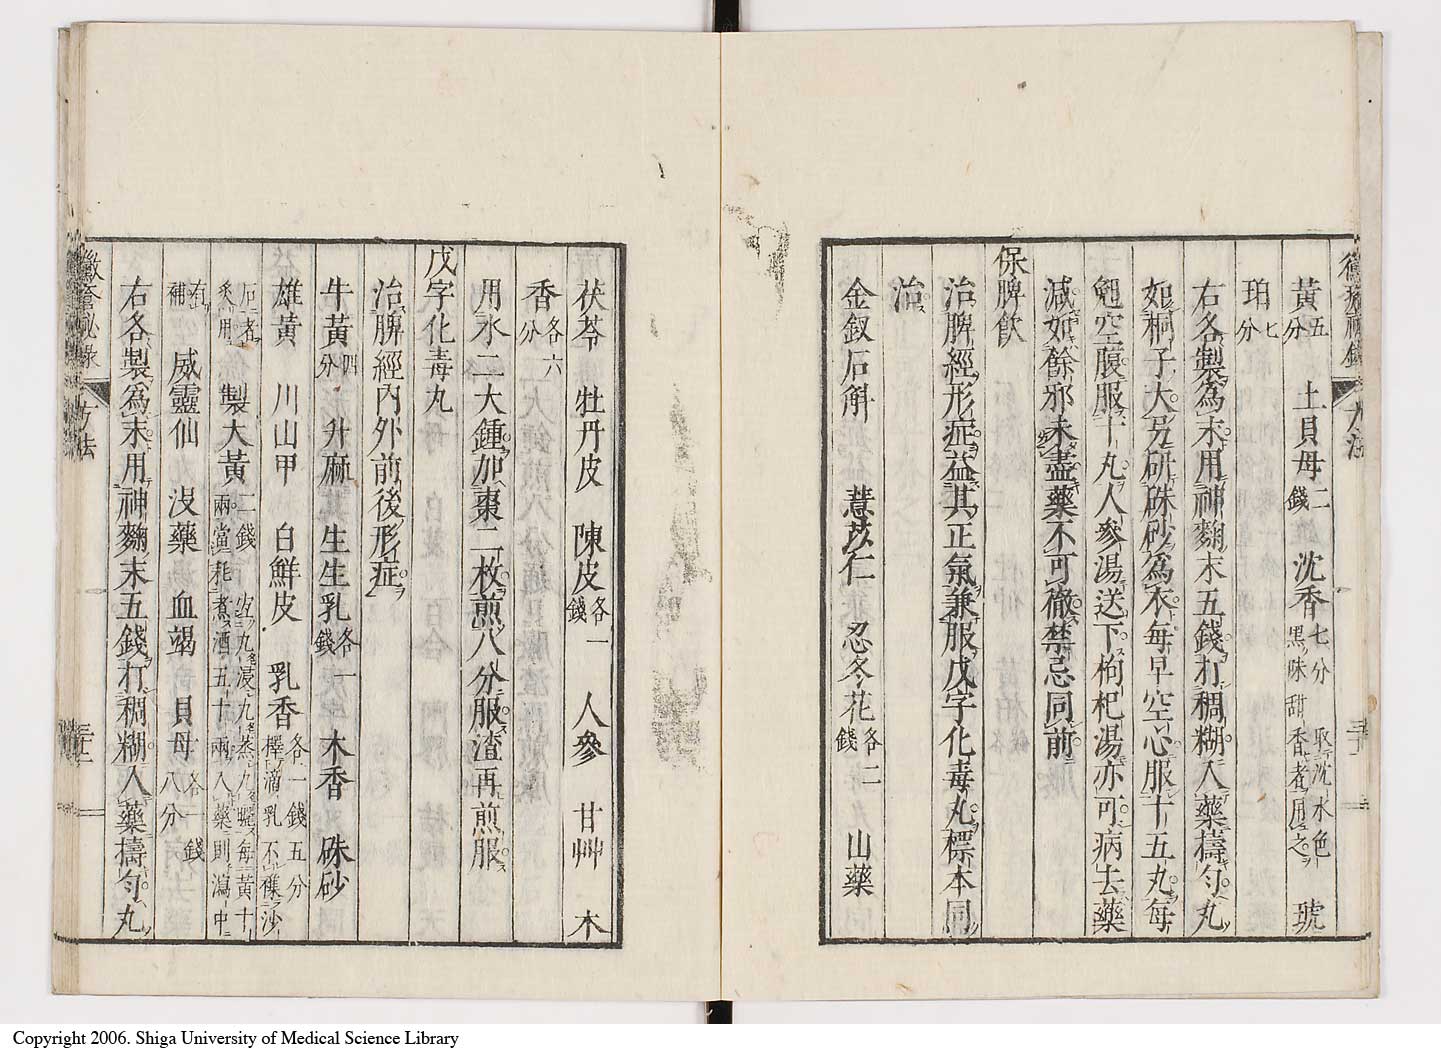 黃五分　土貝母二錢　沈香七分黑味甜香者用之取沈水色　琥
珀七分
右各製爲末用神麴末五錢打稠糊入藥擣勻丸
如桐子大另研硃砂爲衣每早空心服十五丸每
空腹服十丸人參湯送下枸杞湯亦可病去藥
減如餘邪未盡藥不可徹禁忌同前
保脾飮
治脾經形症益其正氣兼服戊字化毒丸標本同
治
金釵石斛　薏苡仁　忍冬花各二錢　山藥
茯苓　牡丹皮　陳皮各一錢　人參　甘艸　木
香各六分
用水二大鍾加棗二枚煎八分服渣再煎服
戊字化毒丸
治脾經內外前後形症
牛黃四分　升麻　生生乳各一錢　木香　硃砂
雄黃　川山甲　白鮮皮　乳香各一錢五分擇滴乳不雜沙
石者炙用　製大黃二錢　九浸九蒸九曬每黃十兩當耗煮酒五十兩入藥則瀉中
有補　威靈仙　沒藥　血竭　貝母各一錢八分
右各製爲末用神麴末五錢打稠糊入藥擣勻丸
黴瘡秘錄　方法
Copyright 2006. Shiga University of Medical Science Library